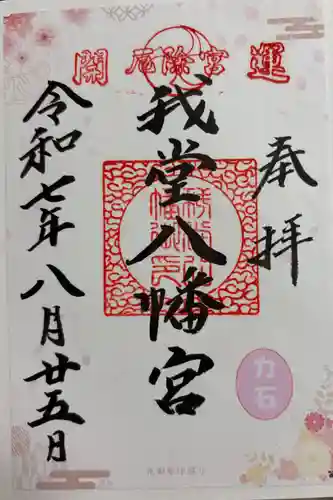 開厄除宮運
奉拝
我堂八幡宮
令和七年八月廿五日
力石